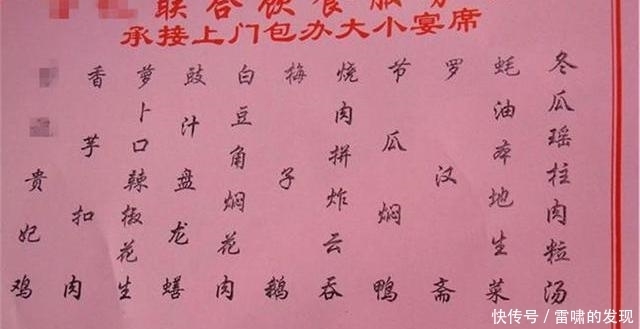 联合饮食服务
承接上门包办大小宴席
冬瓜瑶柱肉粒汤
蚝油本地生菜
罗汉斋
节瓜焖鸭
烧肉拼炸云吞
梅子鹅
白豆角焖花肉
豉汁盘龙蟮
萝卜口辣椒花生
香芋扣肉
贵妃鸡
快传号/雷啸的发现